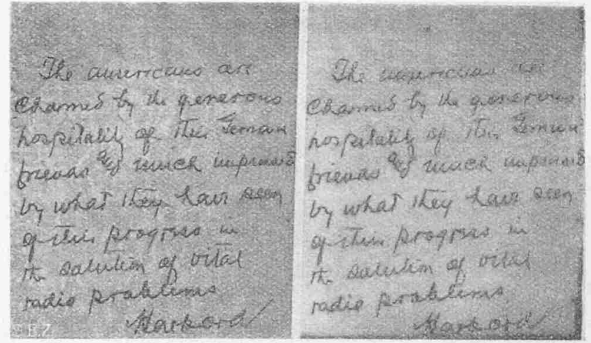 The americans are
charmed by the generous
hospitality of their German
friends and much impressed
by what they have seen
of their progress in
the solution of vital
radio problems
Harbord
The americans are
charmed by the generous
hospitality of their German
friends and much impressed
by what they have seen
of their progress in
the solution of vital
radio problems
Harbord